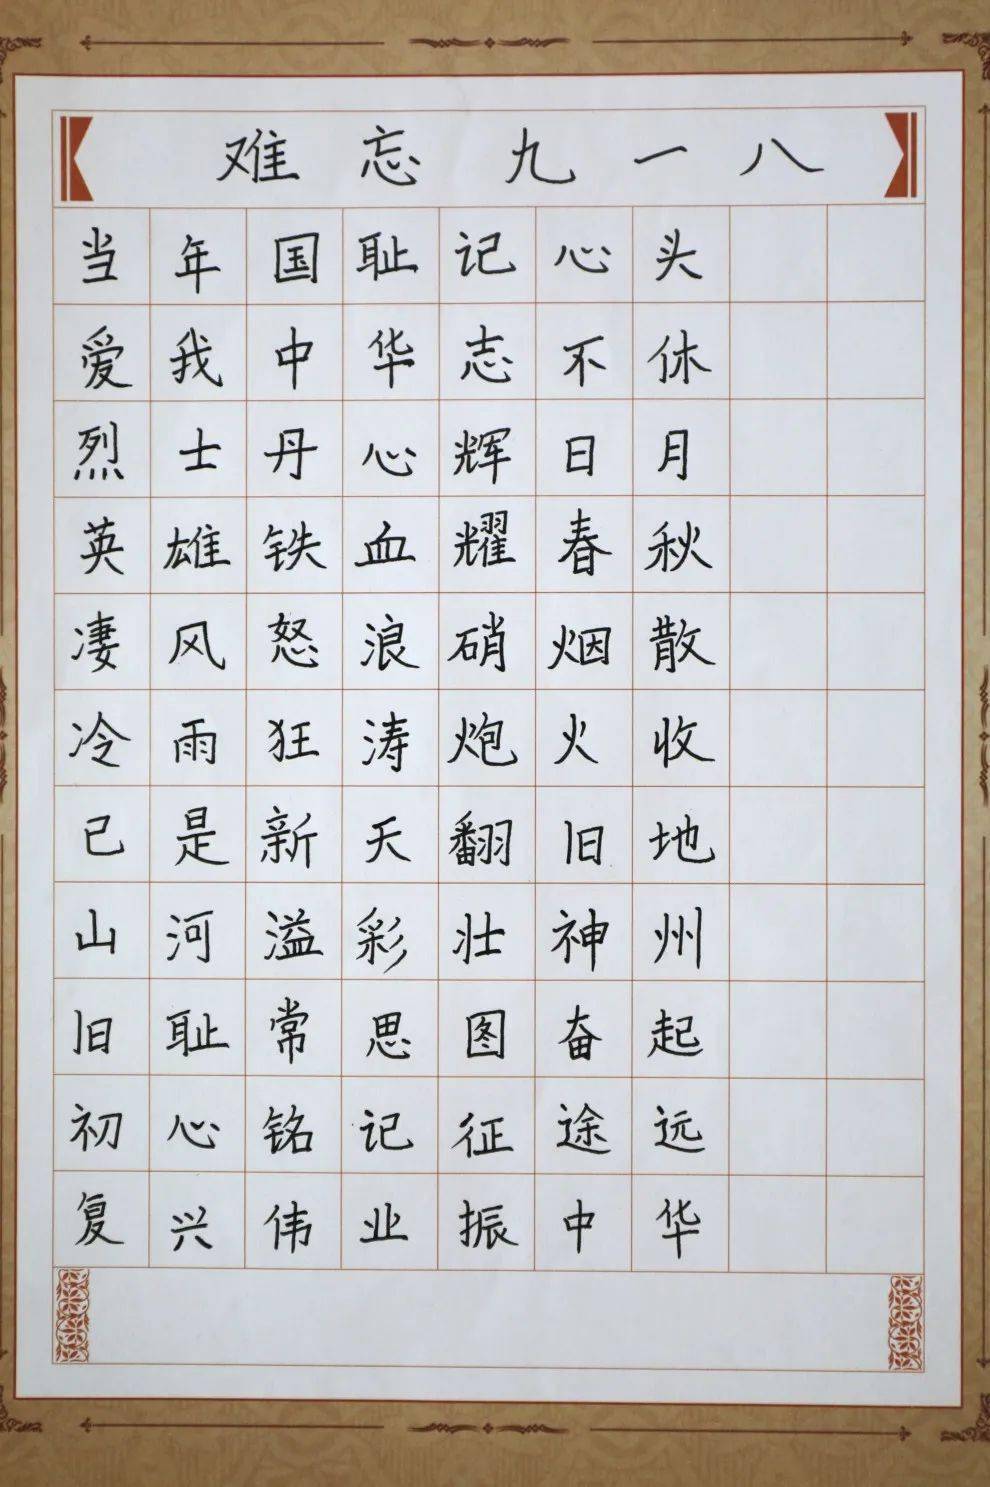 难忘九一八
当年国耻记心头
爱我中华志不休
烈士丹心辉日月
英雄铁血耀春秋
凄风怒浪硝烟散
冷雨狂涛炮火收
已是新天翻旧地
山河溢彩壮神州
旧耻常思图奋起
初心铭记征途远
复兴伟业振中华